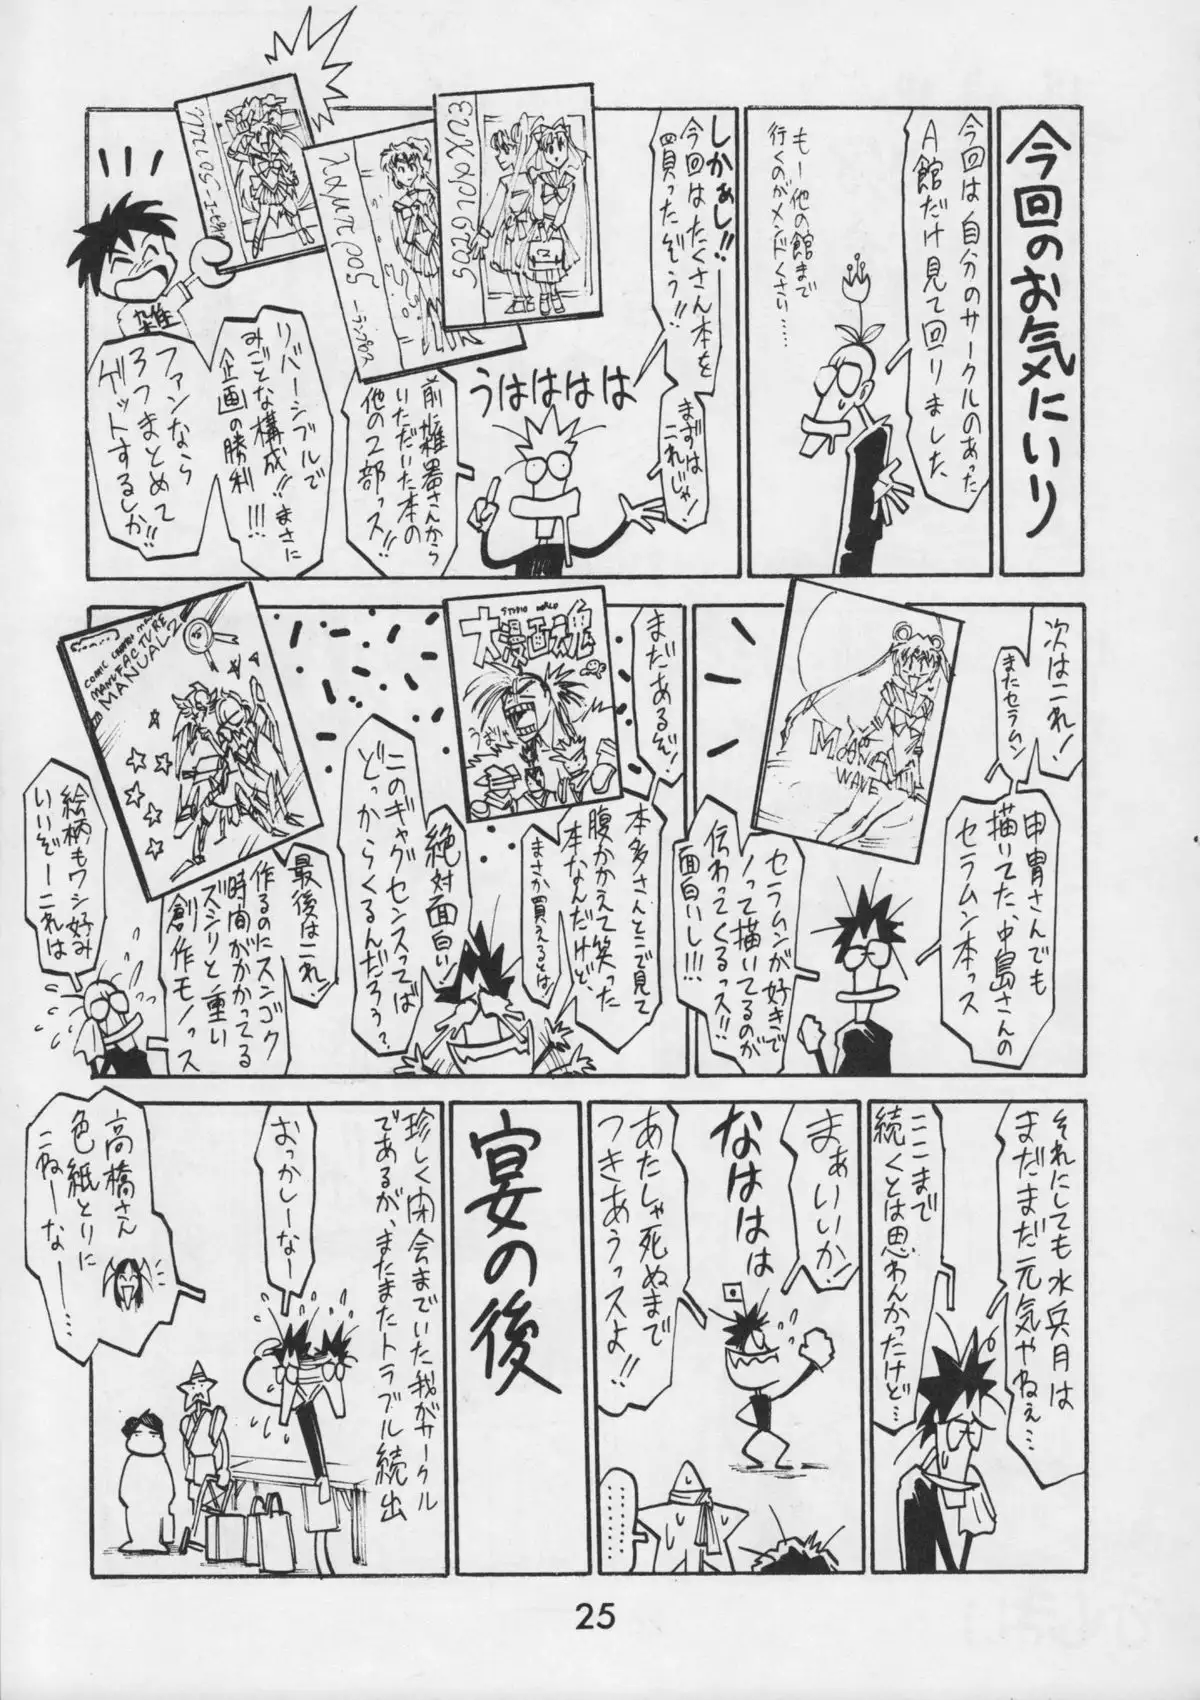 今回のお気にいり
今回は自分のサークルのあった
A館だけ見て回りました
もー他の館まで
行くのがメンドくさい……
しかぁし!!
今回はたくさん本を
買ったぞう!!
まずは
これじゃ!
うはははは
前雑器さんから
いただいた本の
他の2部っス!!
リバーシブルで
みごとな構成!!まさに
企画の勝利!!!
ファンなら
3つまとめて
ゲットするしか!!
雑
次はこれ!
またセラムン
甲冑さんでも
描いてた、中島さんの
セラムン本っス
MOON
WAVE
セラムンが好きで
ノって描いてるのが
伝わってくるっス!!
面白いし!!!
まだあるぞ!
STUDIO WORLD
大漫画魂
本多さんとこで見て
腹かかえて笑った
本なんだけど、
まさか買えるとは、
絶対面白い!
このギャグセンスってば
どっからくるんだろう?
最後はこれ!
COMIC
MANUFACTURE
MANUAL2
作るのにスンゴク
時間がかかってる
ズシリと重い
創作モノっス
絵柄もワシ好み
いいぞーこれは
それにしても水兵月は
まだまだ元気やねぇ…
ここまで
続くとは思わんかったけど…
まぁいいか、
なははは
あたしゃ死ぬまで
つきあうっスよ!!
………
宴の後
珍しく閉会までいた我がサークル
であるが、またまたトラブル続出
おっかしーなー
高橋さん
色紙とりに
こねーなー…
25